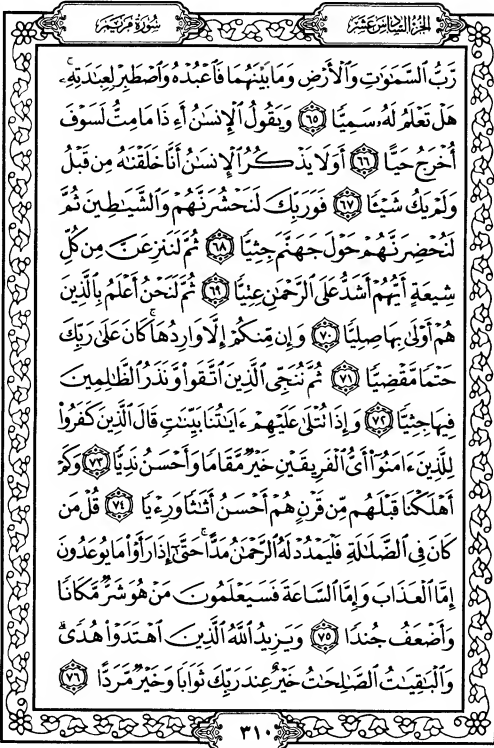 الجزء السادس عشر
سورة مريم
رَّبُّ السَّمَاوَاتِ وَالْأَرْضِ وَمَا بَيْنَهُمَا فَاعْبُدْهُ وَاصْطَبِرْ لِعِبَادَتِهِ ۚ
هَلْ تَعْلَمُ لَهُ سَمِيًّا ٦٥ وَيَقُولُ الْإِنسَانُ أَءِذَا مَا مِتُّ لَسَوْفَ
أُخْرَجُ حَيًّا ٦٦ أَوَلَا يَذْكُرُ الْإِنسَانُ أَنَّا خَلَقْنَاهُ مِن قَبْلُ
وَلَمْ يَكُ شَيْئًا ٦٧ فَوَرَبِّكَ لَنَحْشُرَنَّهُمْ وَالشَّيَاطِينَ ثُمَّ
لَنُحْضِرَنَّهُمْ حَوْلَ جَهَنَّمَ جِثِيًّا ٦٨ ثُمَّ لَنَنزِعَنَّ مِن كُلِّ
شِيعَةٍ أَيُّهُمْ أَشَدُّ عَلَى الرَّحْمَٰنِ عِتِيًّا ٦٩ ثُمَّ لَنَحْنُ أَعْلَمُ بِالَّذِينَ
هُمْ أَوْلَىٰ بِهَا صِلِيًّا ٧٠ وَإِن مِّنكُمْ إِلَّا وَارِدُهَا ۚ كَانَ عَلَىٰ رَبِّكَ
حَتْمًا مَّقْضِيًّا ٧١ ثُمَّ نُنَجِّي الَّذِينَ اتَّقَوا وَّنَذَرُ الظَّالِمِينَ
فِيهَا جِثِيًّا ٧٢ وَإِذَا تُتْلَىٰ عَلَيْهِمْ ءَايَاتُنَا بَيِّنَاتٍ قَالَ الَّذِينَ كَفَرُوا
لِلَّذِينَ ءَامَنُوا أَيُّ الْفَرِيقَيْنِ خَيْرٌ مَّقَامًا وَأَحْسَنُ نَدِيًّا ٧٣ وَكَمْ
أَهْلَكْنَا قَبْلَهُم مِّن قَرْنٍ هُمْ أَحْسَنُ أَثَاثًا وَرِءْيًا ٧٤ قُلْ مَن
كَانَ فِي الضَّلَالَةِ فَلْيَمْدُدْ لَهُ الرَّحْمَٰنُ مَدًّا ۚ حَتَّىٰ إِذَا رَأَوْا مَا يُوعَدُونَ
إِمَّا الْعَذَابَ وَإِمَّا السَّاعَةَ فَسَيَعْلَمُونَ مَنْ هُوَ شَرٌّ مَّكَانًا
وَأَضْعَفُ جُندًا ٧٥ وَيَزِيدُ اللَّهُ الَّذِينَ اهْتَدَوْا هُدًى ۗ
وَالْبَاقِيَاتُ الصَّالِحَاتُ خَيْرٌ عِندَ رَبِّكَ ثَوَابًا وَخَيْرٌ مَّرَدًّا ٧٦
٣١٠